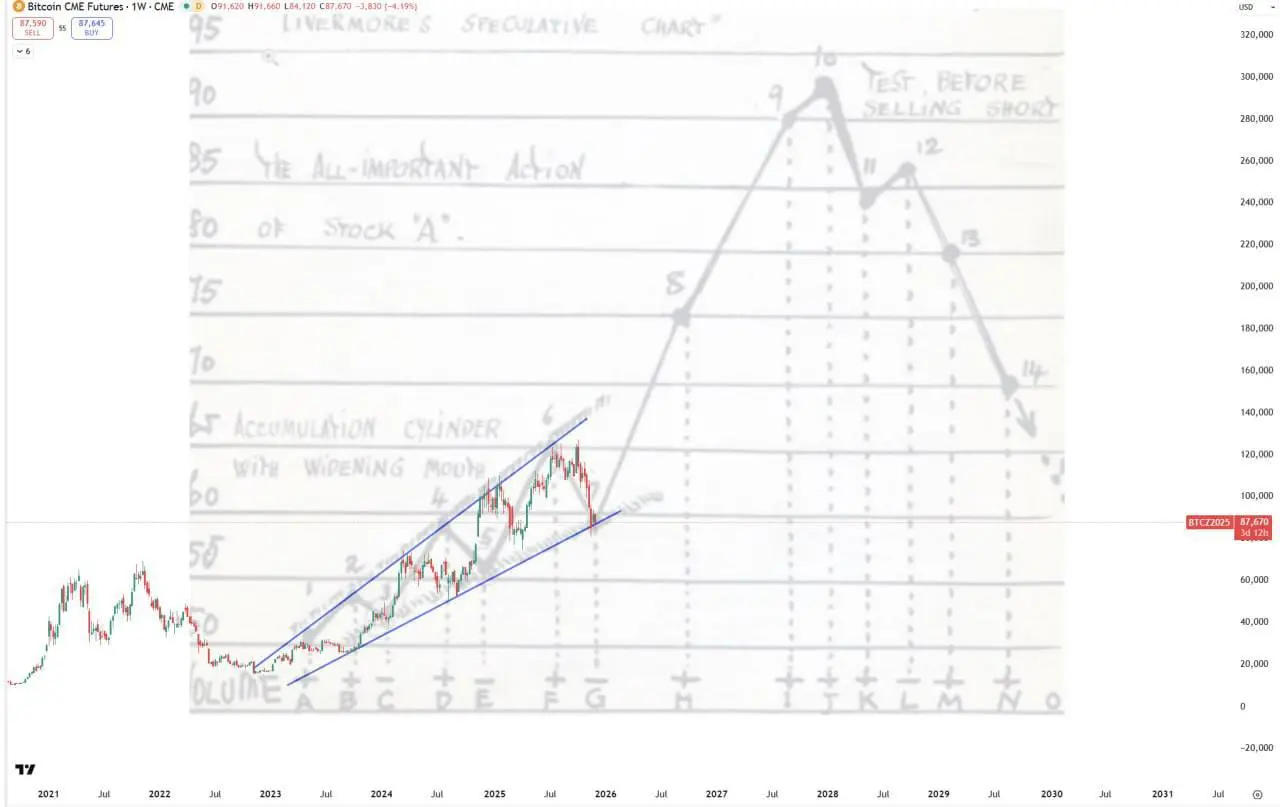 Bitcoin CME Futures · 1W · CME D O91,620 H91,660 L84,120 C87,670 −3,830 (−4.19%)
USD
87,590
SELL
55
87,645
BUY
6
95 LIVERMORE'S SPECULATIVE CHART"
320,000
300,000
280,000
260,000
240,000
220,000
200,000
180,000
160,000
140,000
120,000
100,000
BTCZ2025 87,670
3d 12h
60,000
40,000
20,000
0
−20,000
10
9
90
TEST, BEFORE
SELLING SHORT
12
11
85 THE ALL-IMPORTANT ACTION
80 OF STOCK "A".
13
75
8
70
14
65 ACCUMULATION CYLINDER
6
WITH WIDENING MOUTH
60
4
55
5
2
1
50
VOLUME
+ + − + − + − + + + + − + +
A B C D E F G H I J K L M N O
2021 Jul 2022 Jul 2023 Jul 2024 Jul 2025 Jul 2026 Jul 2027 Jul 2028 Jul 2029 Jul 2030 Jul 2031 Jul